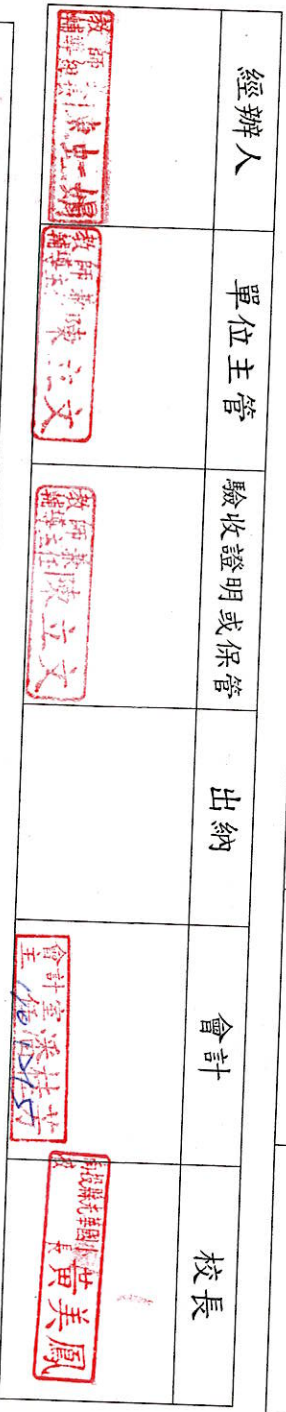 經辦人
單位主管
驗收證明或保管
出納
會計
校長
教師兼
輔導組長
教師兼
輔導主任
陳立文
教師兼
輔導主任
陳立文
會計室
主任
校長
黃美鳳